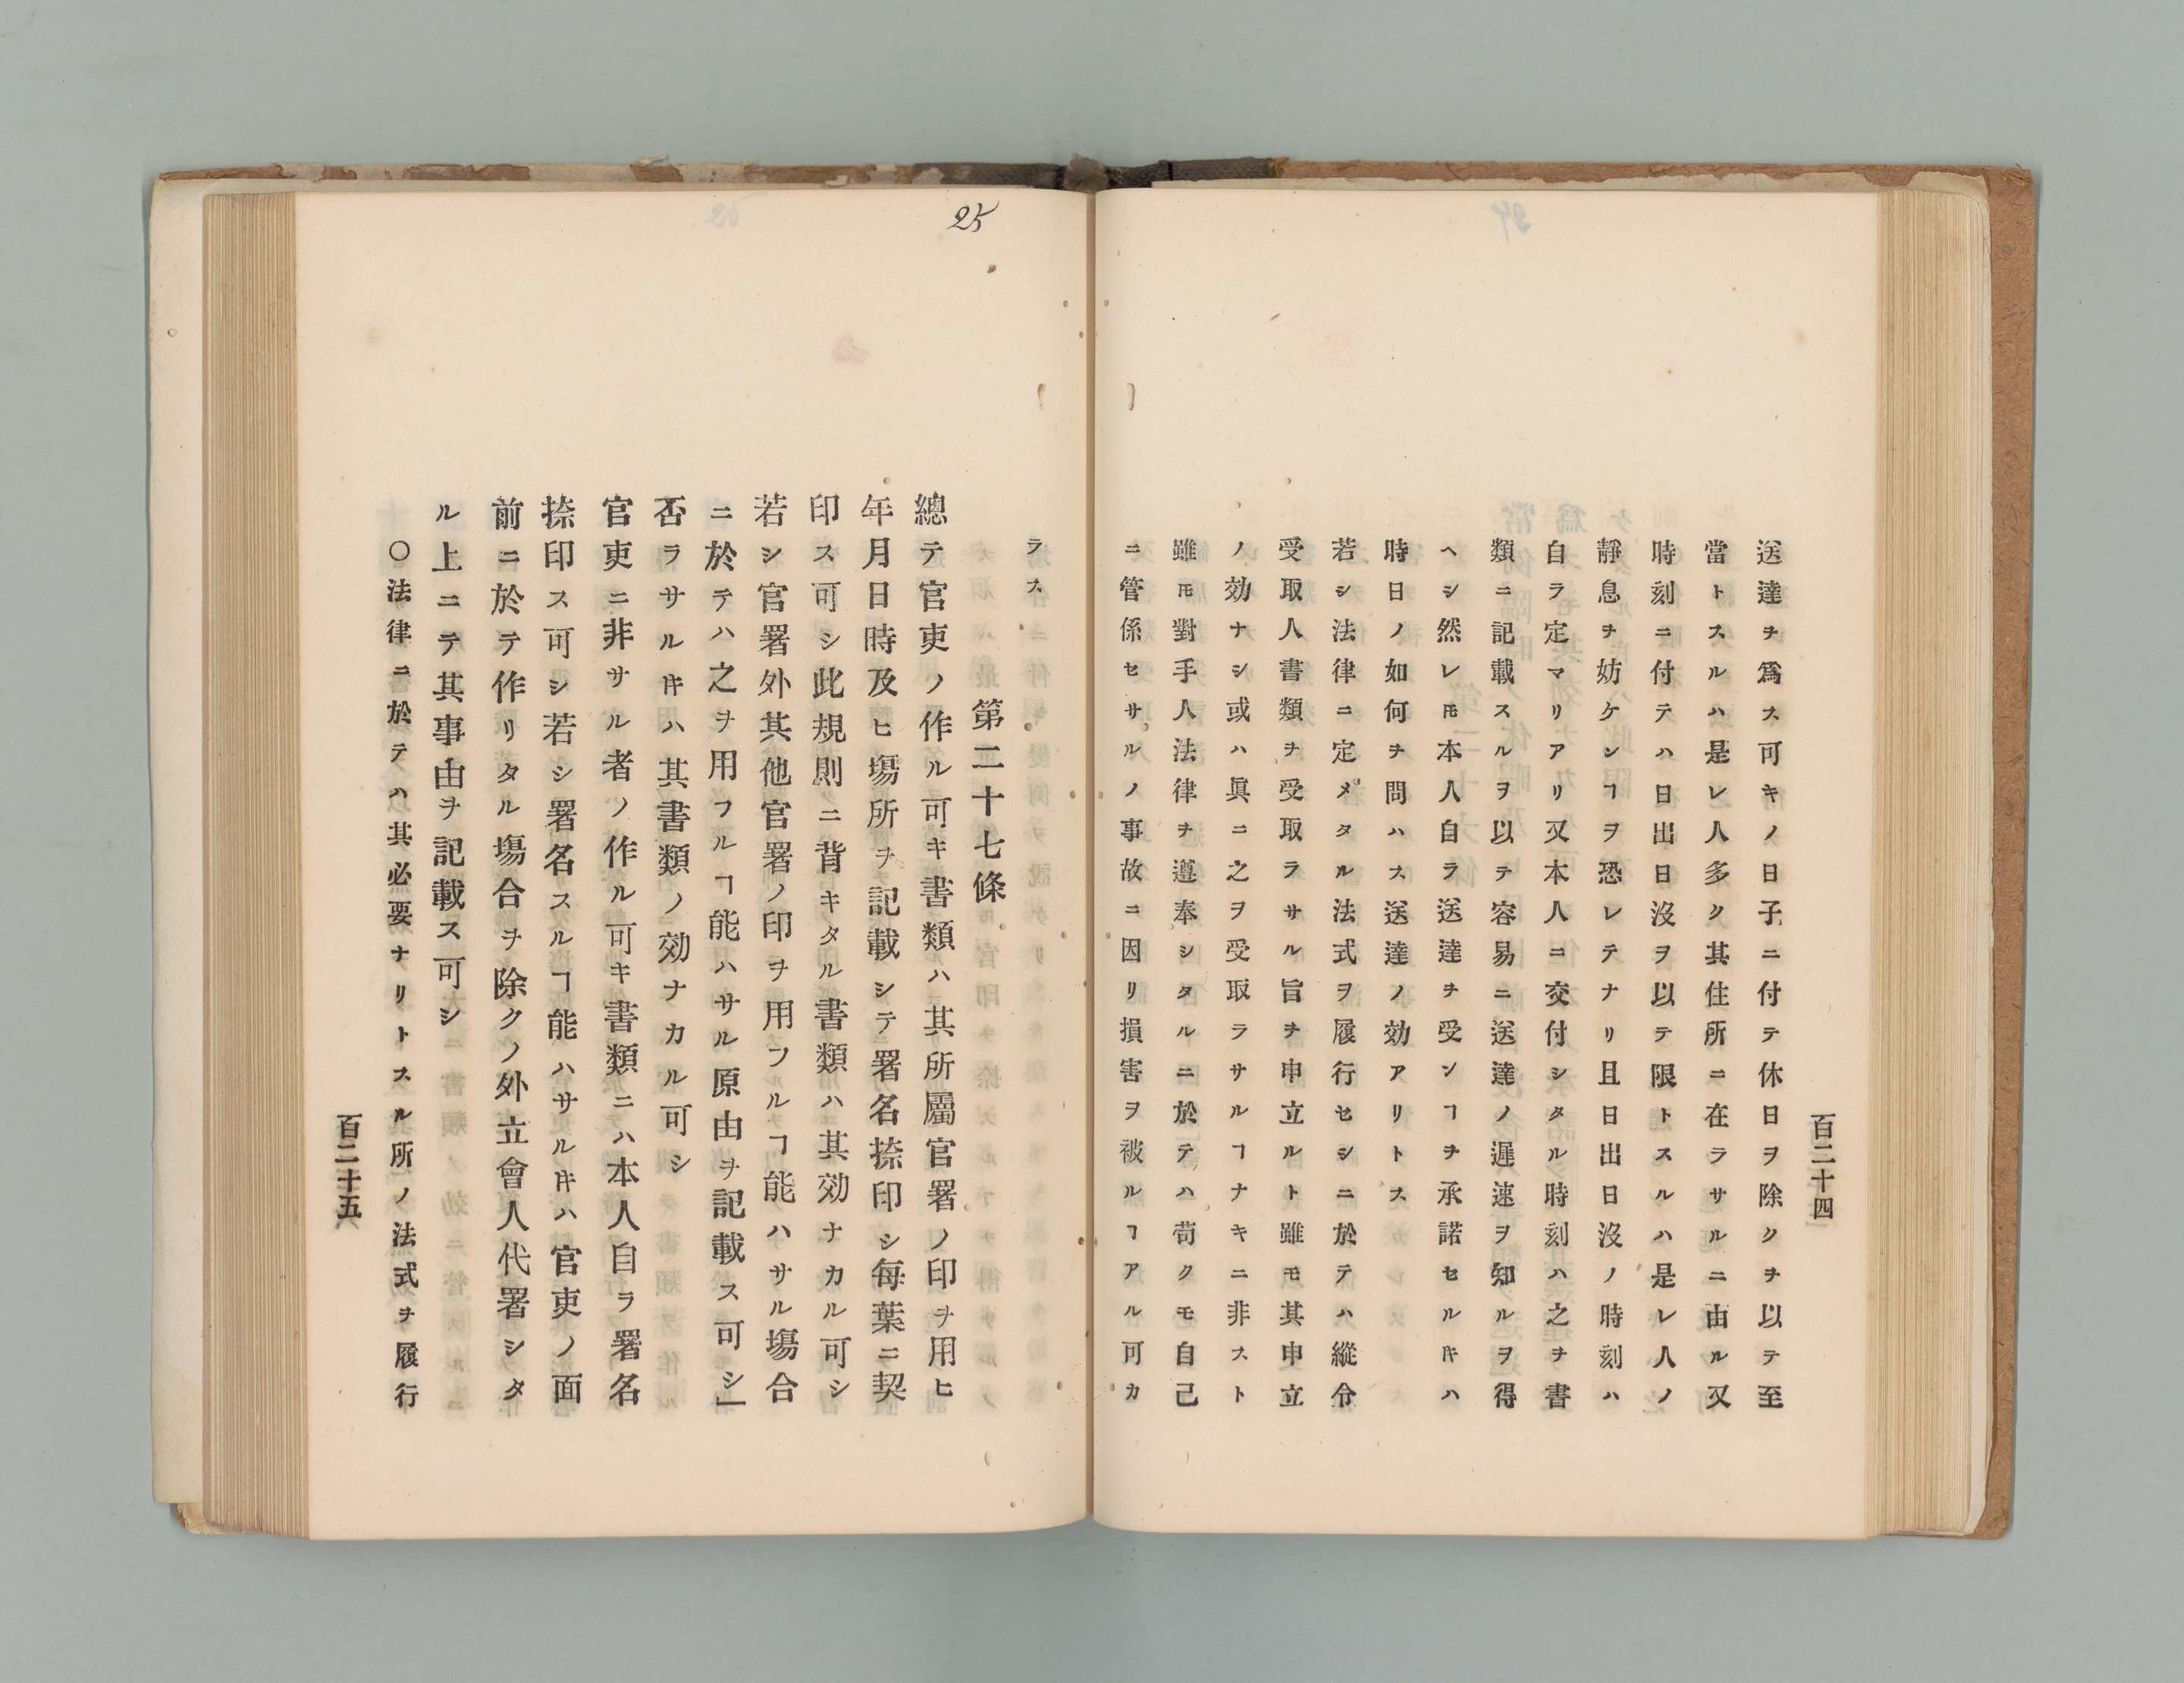 百二十四
送達ヲ爲ス可キノ日子ニ付テ休日ヲ除クヲ以テ至
當トスルハ是レ人多ク其住所ニ在ラサルニ由ル又
時刻ニ付テハ日出日沒ヲ以テ限トスルハ是レ人ノ
靜息ヲ妨ケンヿヲ恐レテナリ且日出日沒ノ時刻ハ
自ラ定マリアリ又本人ニ交付シタル時刻ハ之ヲ書
類ニ記載スルヲ以テ容易ニ送達ノ遲速ヲ知ルヲ得
ヘシ然レ𪜈本人自ラ送達ヲ受ンヿヲ承諾セルキハ
時日ノ如何ヲ問ハス送達ノ効アリトス
若シ法律ニ定メタル法式ヲ履行セシニ於テハ縱令
受取人書類ヲ受取ラサル旨ヲ申立ルト雖モ其申立
ノ効ナシ或ハ眞ニ之ヲ受取ラサルヿナキニ非スト
雖𪜈對手人法律ヲ遵奉シタルニ於テハ苟クモ自己
ニ管係セサルノ事故ニ因リ損害ヲ被ルヿアル可カ
25
ラス
第二十七條
總テ官吏ノ作ル可キ書類ハ其所屬官署ノ印ヲ用ヒ
年月日時及ヒ塲所ヲ記載シテ署名捺印シ每葉ニ契
印ス可シ此規則ニ背キタル書類ハ其効ナカル可シ
若シ官署外其他官署ノ印ヲ用フルヿ能ハサル塲合
ニ於テハ之ヲ用フルヿ能ハサル原由ヲ記載ス可シ」
否ラサルキハ其書類ノ効ナカル可シ
官吏ニ非サル者ノ作ル可キ書類ニハ本人自ラ署名
捺印ス可シ若シ署名スルヿ能ハサルキハ官吏ノ面
前ニ於テ作リタル塲合ヲ除クノ外立會人代署シタ
ル上ニテ其事由ヲ記載ス可シ
〇法律ニ於テハ其必要ナリトスル所ノ法式ヲ履行
百二十五